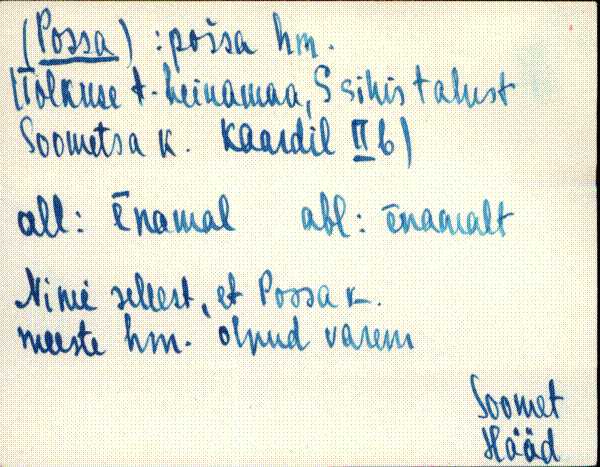 (Possa) : poššа hm.
(Tolkuse t. heinamaa, S sihis talust
Soometsa k. Kaardil II b)
all: ēnamal abl: ēnamalt
Nimi sellest, et Possa k.
meeste hm. olnud varem
Soomet
Hääd